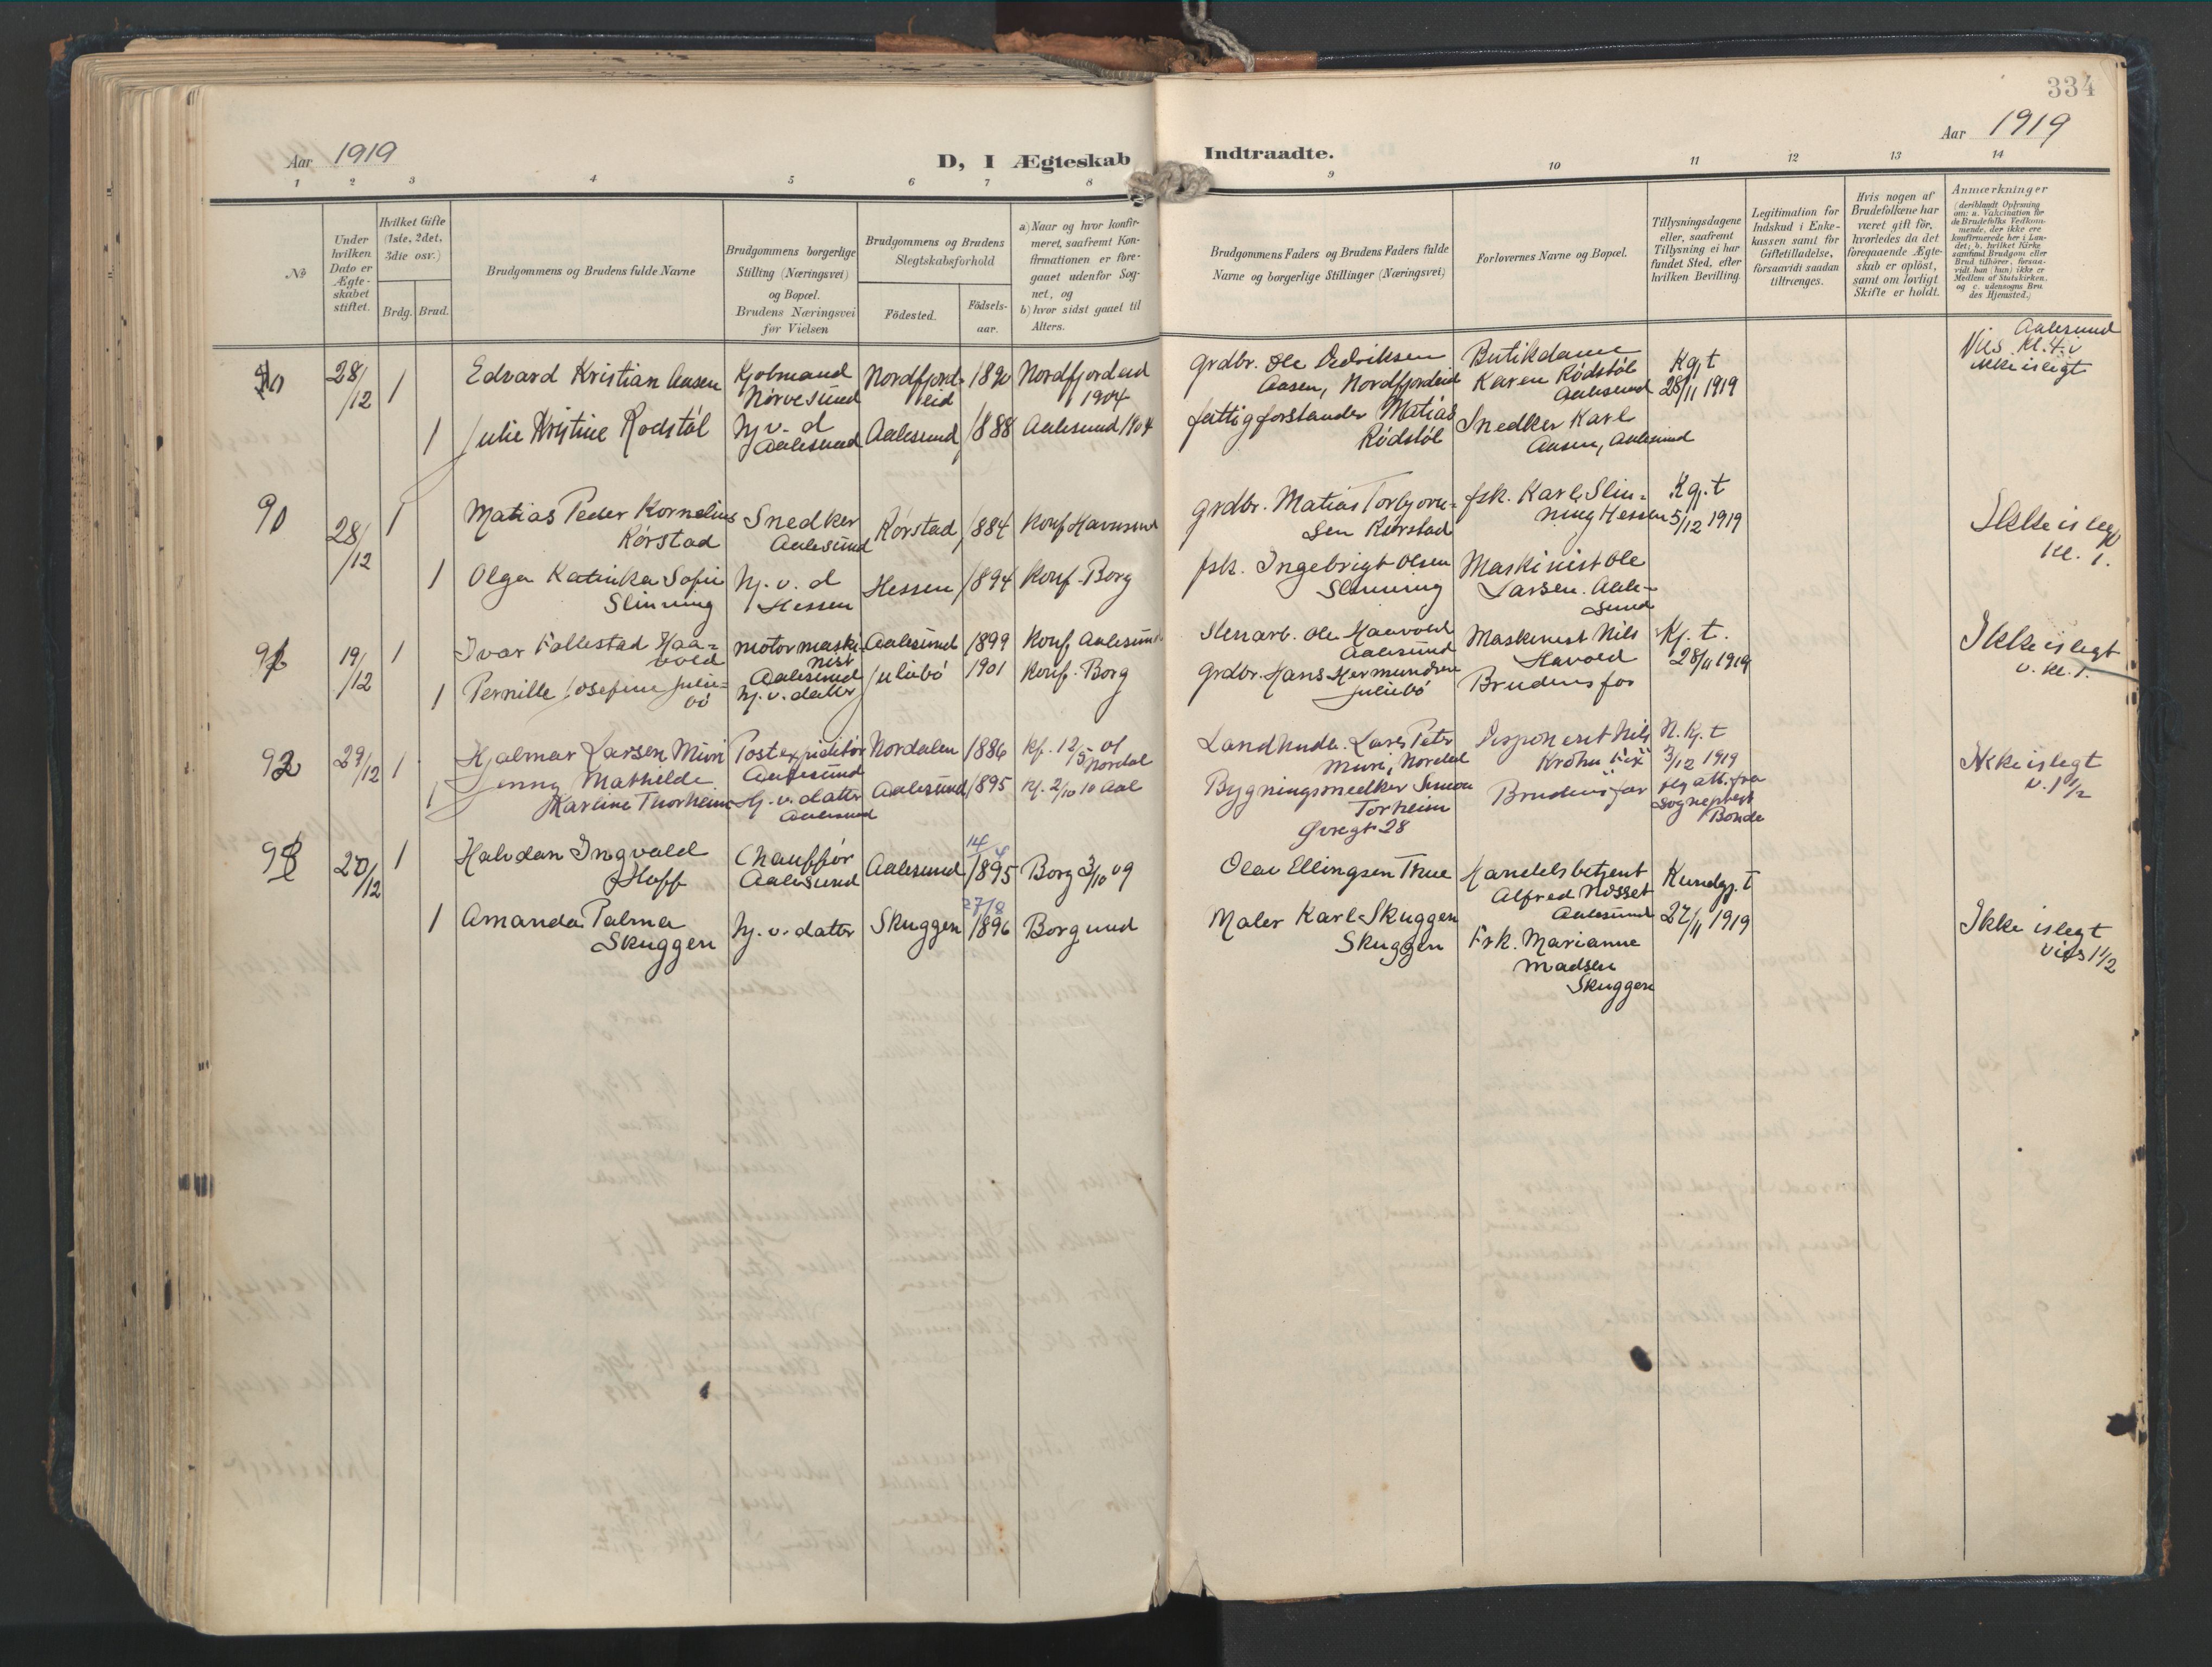 334
Aar 1919
D, I Ægteskab
Indtraadte.
Aar 1919
1 2 3 4 5 6 7 8
9 10 11 12 13 14
No
Under hvilken Dato er Ægteskabet stiftet.
Hvilket Gifte (1ste, 2det, 3die osv.)
Brdg. Brud.
Brudgommens og Brudens fulde Navne
Brudgommens borgerlige Stilling (Næringsvei) og Bopæl. Brudens Næringsvei før Vielsen
Brudgommens og Brudens Slegtskabsforhold
Födested.
Födsels-aar.
a) Naar og hvor konfirmeret, saafremt Konfirmationen er foregaaet udenfor Sognet, og
b) hvor sidst gaaet til Alters.
Brudgommens Faders og Brudens Faders fulde Navne og borgerlige Stillinger (Næringsvei)
Forlovernes Navne og Bopæl.
Tillysningsdagene eller, saafremt Tillysning ei har fundet Sted, efter hvilken Bevilling.
Legitimation for Indskud i Enkekassen samt for Giftetilladelse, forsaavidt saadan tiltrænges.
Hvis nogen af Brudefolkene har været gift för, hvorledes da det foregaaende Ægteskab er oplöst, samt om lovligt Skifte er holdt.
Anmærkninger (deriblandt Oplysning om: a. Vakcination for de Brudefolks Vedkommende, der ikke ere konfirmerede her i Landet; b. hvilket Kirkesamfund Brudgom eller Brud tilhörer, forsaavidt han (hun) ikke er Medlem af Statskirken, og c. udensogns Brudes Hjemsted.)
28/12 1 Edvard Kristian Aasen
Kjøbmand Nørvesund
Nordfjordeid 1890 Nordfjordeid 1904
grdbr. Ole Aasen, Nordfjordeid
Butikdame Karen Rødstøl Aalesund
Kg.t 28/11 1919
Aalesund
Vies Kl. 4 i
ikke islegt
1 Julie Kristine Rødstøl
hj. v. d Aalesund
Aalesund 1888 Aalesund 1904
fattigforstander Matias Rødstøl
Snedker Karl Aasen, Aalesund
90 28/12 1 Matias Peder Kornelius Rørstad
Snedker Aalesund
Rørstad 1884
grdbr. Matias Torbjørnsen Rørstad
fsk. Karl Slinning Hessen
Kg.t 5/12 1919
Ikke islegt
Kl. 1.
1 Olga Katinka Sofie Slinning
hj. v. d Hessen
Hessen 1894 Konf. Borg
fsk. Ingebrigt Olsen Slinning
Maskinist Ole Larsen. Aalesund
19/12 1 Ivar Follestad Haavold
motormaskinist Aalesund
Aalesund 1899 Konf. Aalesund
Ole Haavold Aalesund
Maskinist Nils Havold
Kj. t. 28/11 1919
Ikke islegt
v. kl. 1.
1 Pernille Josefine Juliebö
hj. v. datter
Juliebö 1901 Konf. Borg
grdbr. Hans Hermundsen Juliebö
Brudens far
92 29/12 1 Hjalmar Larsen Muri
Postexpeditør Aalesund
Nordalen 1886 Kf. 12/5 01 Nordal
Landhndl. Lars Peter Muri, Nordal
Disponent Nils
N. Kj. t 3/12 1919
Ikke islegt
v. 1 1/2
1 Jenny Mathilde Karine Thorheim
Hj. v. datter Aalesund
Aalesund 1895 Kf. 2/10 10 Aal
Bygningsnedker Simon Torheim
Øvregt 28
Brudens far
og att. fra Sogneprest Bonde
20/12 1 Halvdan Ingvald Hoff
Chauffør Aalesund
Aalesund 14/4 1895 Borg 3/10 09
Olav Ellingsen Thue
Handelsbetjent Alfred Nosset Aalesund
Kundgj. t 27/11 1919
1 Amanda Palma Skuggen
hj. v. datter
Skuggen 27/8 1896 Borgund
Maler Karl Skuggen Skuggen
Frk. Marianne Madsen Skuggen
Ikke islegt
vies 1 1/2